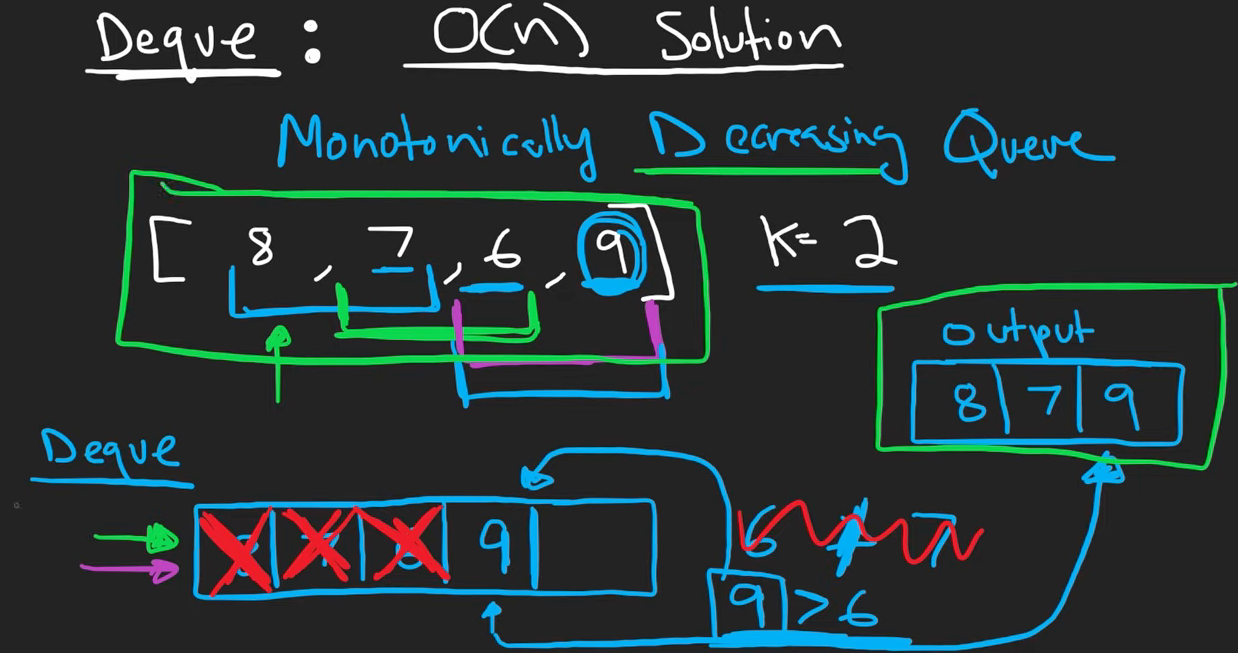 Deque : O(n) Solution
Monotonically Decreasing Queue
[ 8 , 7 , 6 , 9 ] K= 2
Output
8 7 9
Deque
8 7 6 9
6 7
9 > 6